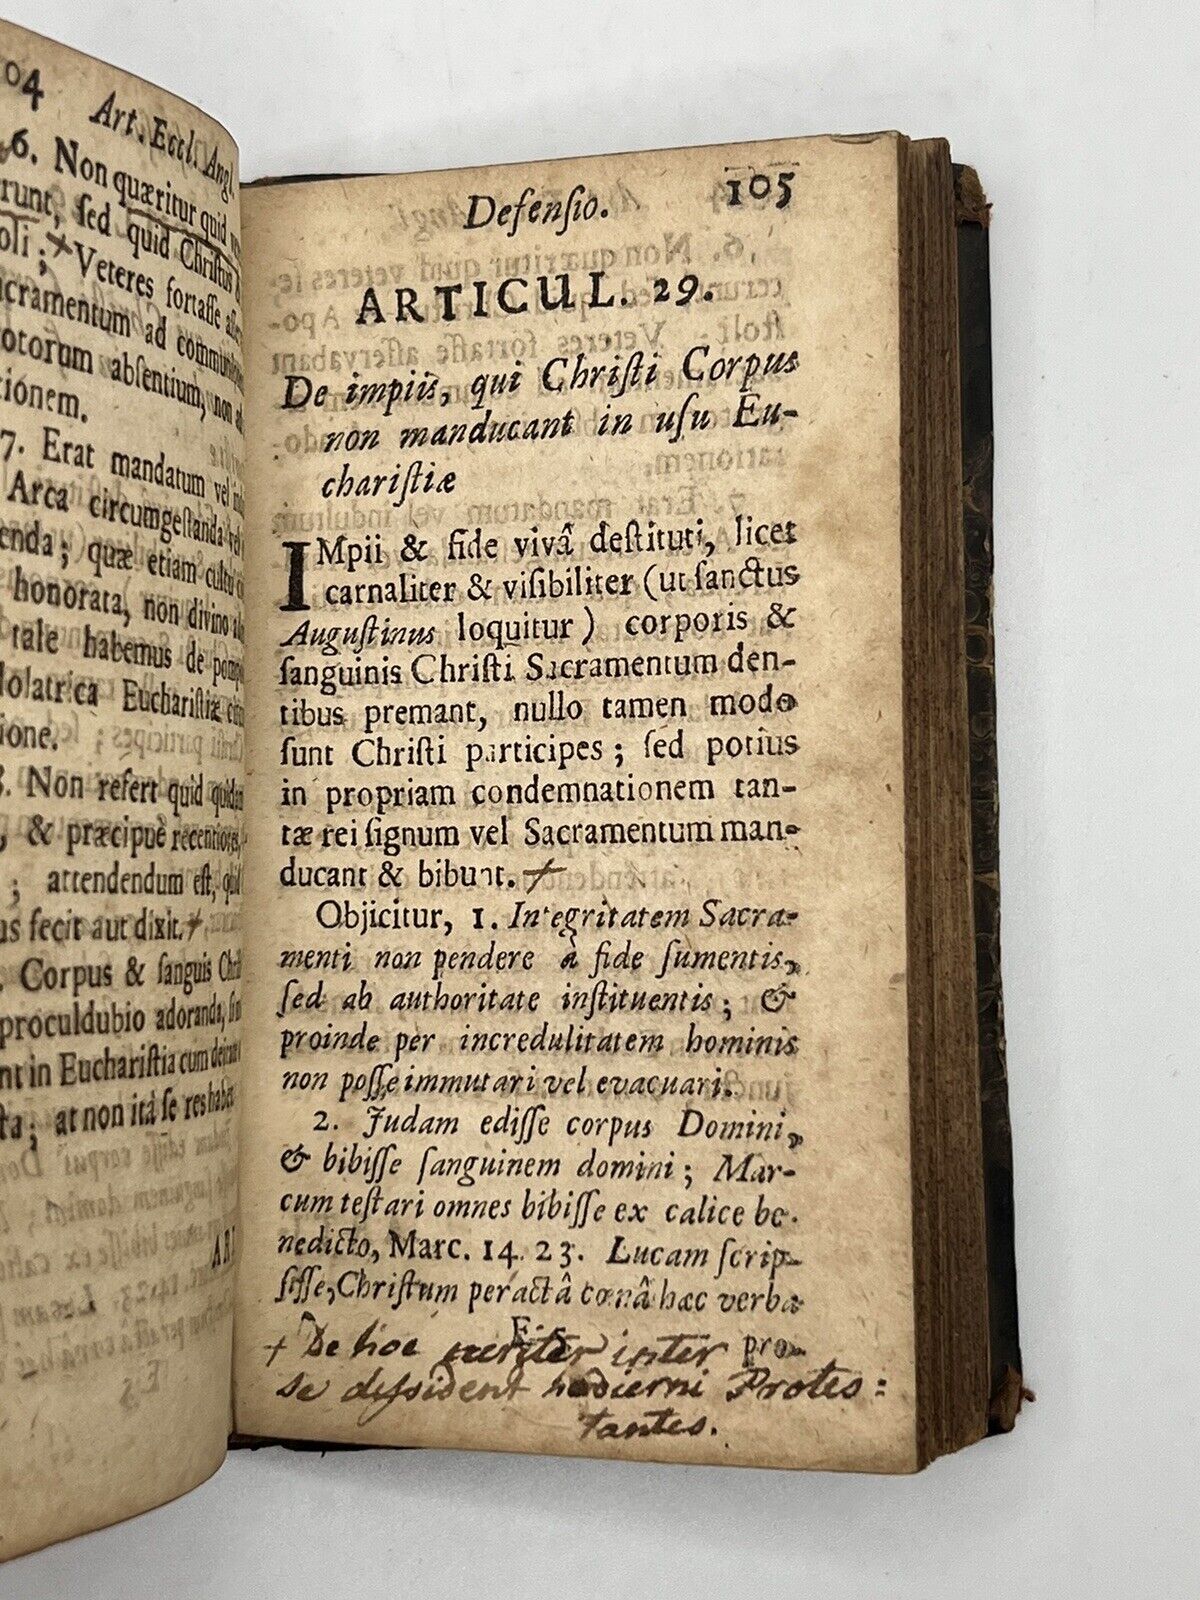 04 Art. Eccl. Angl.
6. Non quæritur quid
runt, ſed quid Chriſtus
oli; + Veteres fortaſſe
acramentum ad
otorum abſentium, non
tionem.
7. Erat mandatum vel
Arca circumgeſtanda
enda; quæ etiam cultu
honorata, non divino
tale habemus de
dolatrica Euchariſtiæ
ione.
8. Non refert quid quidam
, & præcipuè recentiores,
; attendendum eſt, quid
us fecit aut dixit. +
. Corpus & ſanguis
proculdubio adoranda,
nt in Euchariſtia cum
ta; at non ità ſe res habet
Defenſio. 105
ARTICUL. 29.
De impiis, qui Chriſti Corpus
non manducant in uſu Eu-
chariſtiæ
IMpii & fide vivâ deſtituti, licet
carnaliter & viſibiliter (ut ſanctus
Auguſtinus loquitur) corporis &
ſanguinis Chriſti Sacramentum den-
tibus premant, nullo tamen modo
ſunt Chriſti participes; ſed potius
in propriam condemnationem tan-
tæ rei ſignum vel Sacramentum man-
ducant & bibunt. +
Objicitur, 1. Integritatem Sacra-
menti non pendere à fide ſumentis,
ſed ab authoritate inſtituentis; &
proinde per incredulitatem hominis
non poſſe immutari vel evacuari.
2. Judam ediſſe corpus Domini,
& bibiſſe ſanguinem domini; Mar-
cum teſtari omnes bibiſſe ex calice be-
nedicto, Marc. 14. 23. Lucam ſcrip-
ſiſſe, Chriſtum peractâ cœnâ hæc verba
E 5 pro-
+ De hoc acriter inter
se dissident hodierni Protes=
tantes.